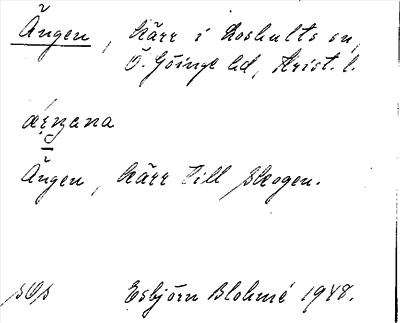 Ängen, kärr i Loshults sn,
Ö. Göinge hd, Krist. l.
Ängen, kärr till skogen.
Esbjörn Blohmé 1948.